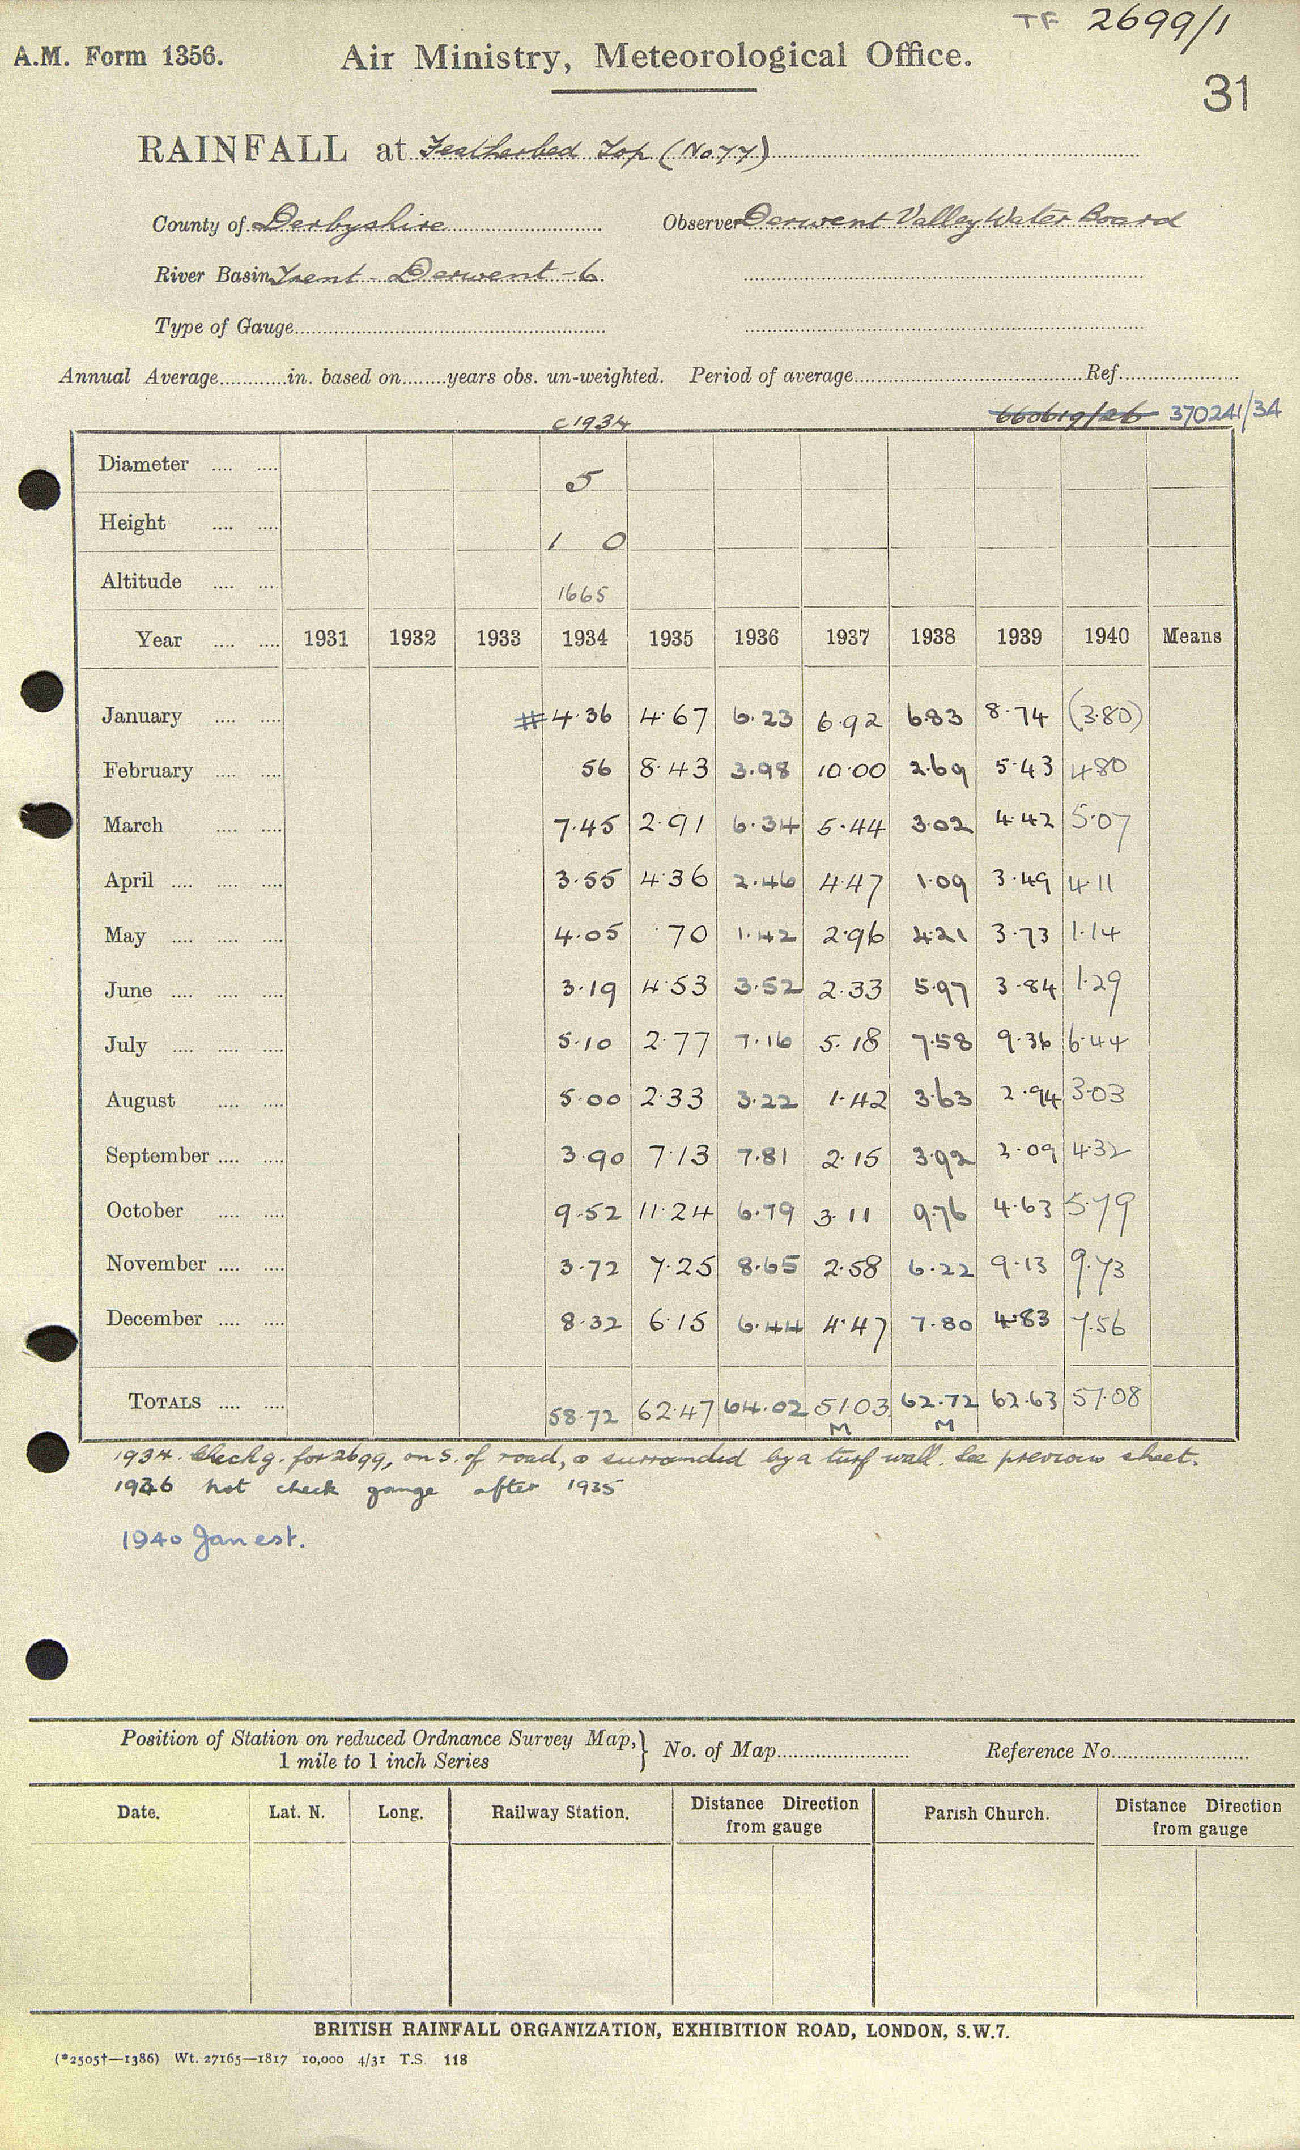 TF 2699/1
A.M. Form 1356. Air Ministry, Meteorological Office.
31
RAINFALL at Featherbed Top (No 77)
County of Derbyshire Observer Derwent Valley Water Board
River Basin Trent - Derwent - 6
Type of Gauge
Annual Average in. based on years obs. un-weighted. Period of average Ref.
c1934 660619/26 370241/34
Diameter 5
Height 1 0
Altitude 1665
Year 1931 1932 1933 1934 1935 1936 1937 1938 1939 1940 Means
January # 4.36 4.67 6.23 6.92 6.83 8.74 (3.80)
February 56 8.43 3.98 10.00 2.69 5.43 4.80
March 7.45 2.91 6.34 5.44 3.02 4.42 5.07
April 3.55 4.36 2.46 4.47 1.09 3.49 4.11
May 4.05 .70 1.42 2.96 4.21 3.73 1.14
June 3.19 4.53 3.52 2.33 5.97 3.84 1.29
July 5.10 2.77 7.16 5.18 7.58 9.36 6.44
August 5.00 2.33 3.22 1.42 3.63 2.94 3.03
September 3.90 7.13 7.81 2.15 3.92 2.09 4.32
October 9.52 11.24 6.79 3.11 9.76 4.63 5.79
November 3.72 7.25 8.65 2.58 6.22 9.13 9.73
December 8.32 6.15 6.44 4.47 7.80 4.83 7.56
TOTALS 58.72 62.47 64.02 51.03 62.72 62.63 57.08
M M
1934. Check g. for 2699, on S. of road, & surrounded by a turf wall. See previous sheet.
1936 not check gauge after 1935
1940 Jan est.
Position of Station on reduced Ordnance Survey Map, } No. of Map Reference No.
1 mile to 1 inch Series
Date. Lat. N. Long. Railway Station. Distance Direction from gauge Parish Church. Distance Direction from gauge
BRITISH RAINFALL ORGANIZATION, EXHIBITION ROAD, LONDON, S.W.7.
(*2505†—1386) Wt. 27165—1817 10,000 4/31 T.S. 118